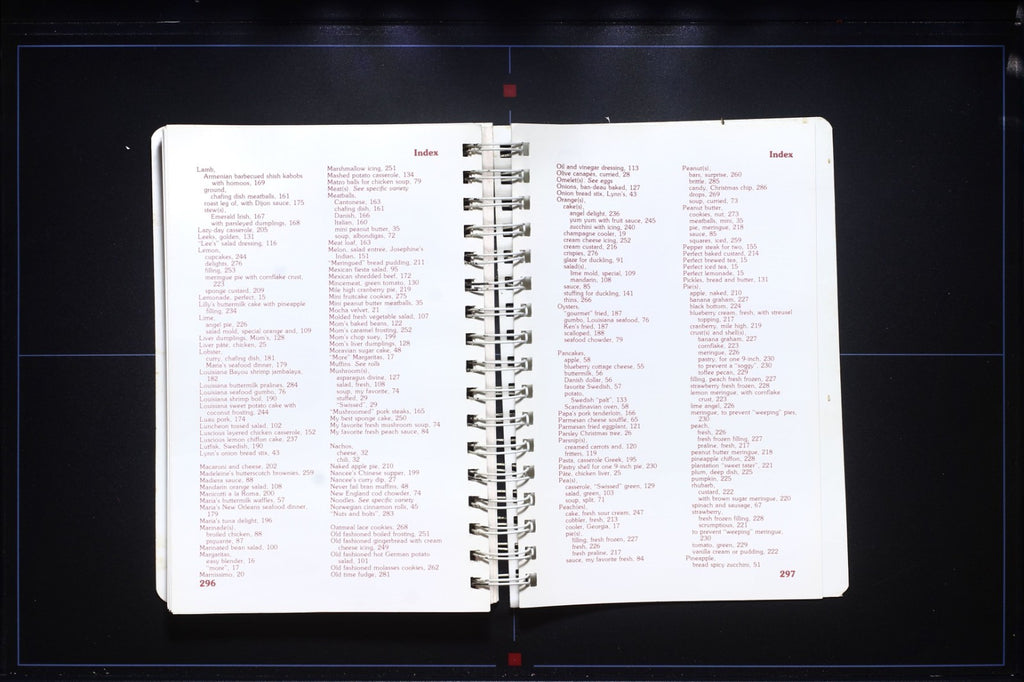 Index
Lamb,
Armenian barbecued shish kabobs
with homoos, 169
ground,
chafing dish meatballs, 161
roast leg of, with Dijon sauce, 175
stew(s),
Emerald Irish, 167
with parsleyed dumplings, 168
Lazy-day casserole, 205
Leeks, golden, 131
"Lee's" salad dressing, 116
Lemon,
cupcakes, 244
delights, 276
filling, 253
meringue pie with cornflake crust,
223
sponge custard, 209
Lemonade, perfect, 15
Lilly's buttermilk cake with pineapple
filling, 234
Lime,
angel pie, 226
salad mold, special orange and, 109
Liver dumplings, Mom's, 128
Liver pâte, chicken, 25
Lobster,
curry, chafing dish, 181
Maria's seafood dinner, 179
Louisiana Bayou shrimp jambalaya,
182
Louisiana buttermilk pralines, 284
Louisiana seafood gumbo, 76
Louisiana shrimp boil, 190
Louisiana sweet potato cake with
coconut frosting, 244
Luau pork, 174
Luncheon tossed salad, 102
Luscious layered chicken casserole, 152
Luscious lemon chiffon cake, 237
Lutfisk, Swedish, 190
Lynn's onion bread stix, 43
Macaroni and cheese, 202
Madeleine's butterscotch brownies, 259
Madiera sauce, 88
Mandarin orange salad, 108
Manicotti a la Roma, 200
Maria's buttermilk waffles, 57
Maria's New Orleans seafood dinner,
179
Maria's tuna delight, 196
Marinade(s),
broiled chicken, 88
piquante, 87
Marinated bean salad, 100
Margaritas,
easy blender, 16
"more", 17
Marnissimo, 20
296
Marshmallow icing, 251
Mashed potato casserole, 134
Matzo balls for chicken soup, 79
Meat(s) See specific variety
Meatballs,
Cantonese, 163
chafing dish, 161
Danish, 166
Italian, 160
mini peanut butter, 35
soup, albondigas, 72
Meat loaf, 163
Melon, salad entrée, Josephine's
Indian, 151
"Meringued" bread pudding, 211
Mexican fiesta salad, 95
Mexican shredded beef, 172
Mincemeat, green tomato, 130
Mile high cranberry pie, 219
Mini fruitcake cookies, 275
Mini peanut butter meatballs, 35
Mocha velvet, 21
Molded fresh vegetable salad, 107
Mom's baked beans, 122
Mom's caramel frosting, 252
Mom's chop suey, 199
Mom's liver dumplings, 128
Moravian sugar cake, 48
"More" Margaritas, 17
Muffins. See rolls
Mushroom(s),
asparagus divine, 127
salad, fresh, 108
soup, my favorite, 74
stuffed, 29
"Swissed", 29
"Mushroomed" pork steaks, 165
My best sponge cake, 250
My favorite fresh mushroom soup, 74
My favorite fresh peach sauce, 84
Nachos,
cheese, 32
chili, 32
Naked apple pie, 210
Nancee's Chinese supper, 199
Nancee's curry dip, 27
Never fail bran muffins, 48
New England cod chowder, 74
Noodles. See specific variety
Norwegian cinnamon rolls, 45
"Nuts and bolts", 283
Oatmeal lace cookies, 268
Old fashioned boiled frosting, 251
Old fashioned gingerbread with cream
cheese icing, 249
Old fashioned hot German potato
salad, 101
Old fashioned molasses cookies, 262
Old time fudge, 281
Index
Oil and vinegar dressing, 113
Olive canapes, curried, 28
Omelet(s) See eggs
Onions, ban-deau baked, 127
Onion bread stix, Lynn's, 43
Orange(s),
cake(s),
angel delight, 236
yum yum with fruit sauce, 245
zucchini with icing, 240
champagne cooler, 19
cream cheese icing, 252
cream custard, 216
crispies, 276
glaze for duckling, 91
salad(s),
lime mold, special, 109
mandarin, 108
sauce, 85
stuffing for duckling, 141
thins, 266
Oysters,
"gourmet" fried, 187
gumbo, Louisiana seafood, 76
Ken's fried, 187
scalloped, 188
seafood chowder, 79
Pancakes,
apple, 58
blueberry cottage cheese, 55
buttermilk, 56
Danish dollar, 56
favorite Swedish, 57
potato,
Swedish "palt", 133
Scandinavian oven, 58
Papa's pork tenderloin, 166
Parmesan cheese souffle, 65
Parmesan fried eggplant, 121
Parsley Christmas tree, 26
Parsnip(s),
creamed carrots and, 120
fritters, 119
Pasta, casserole Greek, 195
Pastry shell for one 9-inch pie, 230
Pâte, chicken liver, 25
Pea(s),
casserole, "Swissed" green, 129
salad, green, 103
soup, split, 71
Peach(es),
cake, fresh sour cream, 247
cobbler, fresh, 213
cooler, Georgia, 17
pie(s),
filling, fresh frozen, 227
fresh, 226
fresh praline, 217
sauce, my favorite fresh, 84
Peanut(s),
bars, surprise, 260
brittle, 285
candy, Christmas chip, 286
drops, 269
soup, curried, 73
Peanut butter,
cookies, nut, 273
meatballs, mini, 35
pie, meringue, 218
sauce, 85
squares, iced, 259
Pepper steak for two, 155
Perfect baked custard, 214
Perfect brewed tea, 15
Perfect iced tea, 15
Perfect lemonade, 15
Pickles, bread and butter, 131
Pie(s),
apple, naked, 210
banana graham, 227
black bottom, 224
blueberry cream, fresh, with streusel
topping, 217
cranberry, mile high, 219
crust(s) and shell(s),
banana graham, 227
cornflake, 223
meringue, 226
pastry, for one 9-inch, 230
to prevent a "soggy", 230
toffee pecan, 229
filling, peach fresh frozen, 227
strawberry fresh frozen, 228
lemon meringue, with cornflake
crust, 223
lime angel, 226
meringue, to prevent "weeping" pies,
230
peach,
fresh, 226
fresh frozen filling, 227
praline, fresh, 217
peanut butter meringue, 218
pineapple chiffon, 228
plantation "sweet tater", 221
plum, deep dish, 225
pumpkin, 225
rhubarb,
custard, 222
with brown sugar meringue, 220
spinach and sausage, 67
strawberry,
fresh frozen filling, 228
scrumptious, 221
to prevent "weeping" meringue,
230
tomato, green, 229
vanilla cream or pudding, 222
Pineapple,
bread spicy zucchini, 51
297